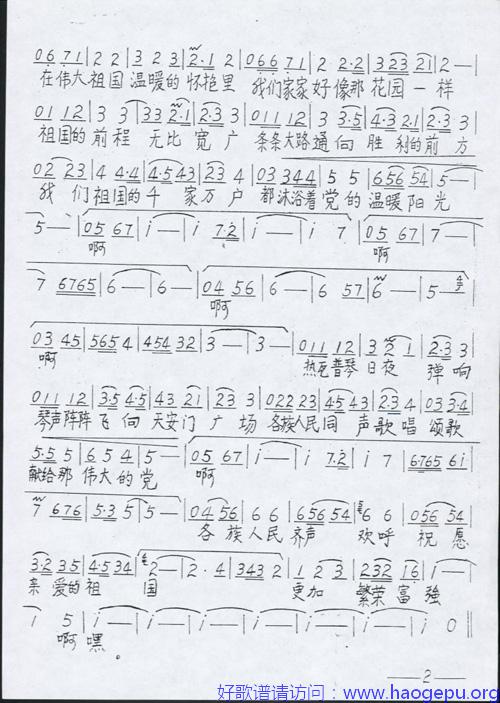 06 71 | 2 2 | 3 2 3 | 2·1 2 | 066 71 | 2 2·2 | 3 23 21 | 2 — |
在伟大祖国温暖的怀抱里 我们家家好像那花园一样
01 12 | 3 3 | 33 2·1 | 2·3 3 | 011 12 | 3 3·5 | 4·3 2·1 | 2·3 3 |
祖国的前程无比宽广 条条大路通向胜利的前方
02 23 | 4 4·4 | 4·5 43 | 23 4 | 03 344 | 5 5 | 656 54 | 5 — |
我们祖国的千家万户 都沐浴着党的温暖阳光
5 — | 05 67 | i — | i 7·2 | i — | i 7 | 05 67 | 7 — |
啊 啊
7 6765 | 6 — | 6 — | 04 56 | 6 57 | 6 — | 5 —
啊
03 45 | 565 4 | 454 32 | 3 — | 3 — | 011 12 | 3 2 1 | 2·3 3 |
啊 热瓦普琴日夜弹响
011 12 | 3·5 4·5 | 43 21 | 23 3 | 022 23 | 45 43 | 2·3 4 | 03 3·4 |
琴声阵阵飞向天安门广场 各族人民同声歌唱 颂歌
5·5 5 | 6 5 4 | 5 — | 05 67 | i — | i 7·2 | i 7 | 6·765 6i |
献给那伟大的党 啊
7 676 | 5·3 5 | 5 — | 04 56 | 6 6 | 656 54 | 6 6 | 056 54 |
各族人民齐声欢呼祝愿
3·2 35 | 4·5 34 | 2 — | 2·4 | 343 2 | 1 2 3 | 232 16 | i — |
亲爱的祖国 更加繁荣富强
i 5 | i — | i — | i — | i — | i — | i — | i 0 ‖
啊嘿。
—— 2 —
好歌谱请访问：www.haogepu.org